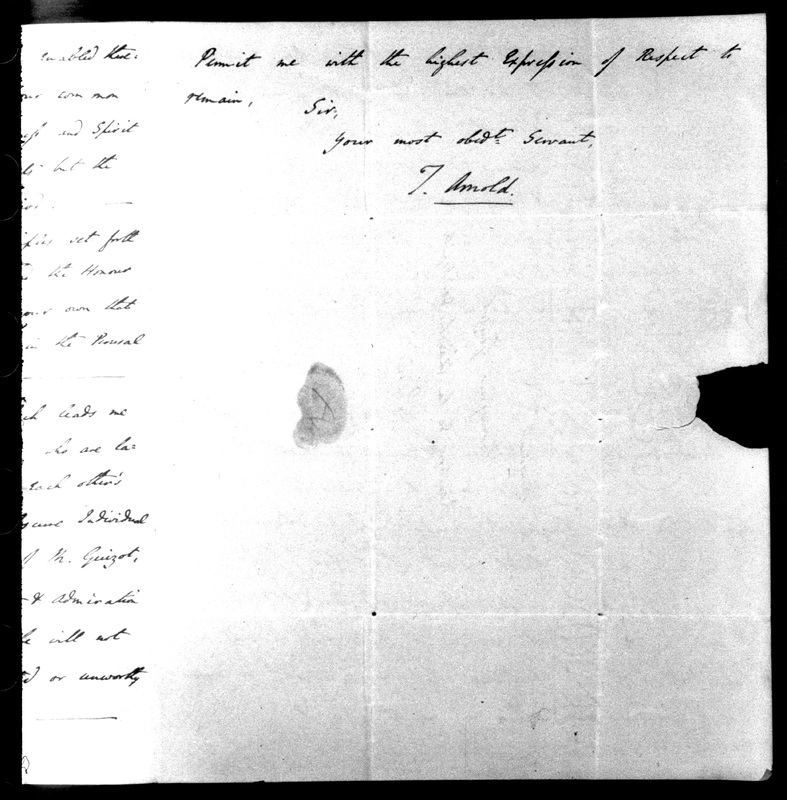 enabled
our common
and Spirit
but the
set forth
the Honour
our own that
in the Perusal
leads me
who are la=
each other's
Individual
of M. Guizot,
& admiration
will not
or unworthy
Permit me with the highest Expression of Respect to
remain,
Sir,
your most obedt Servant,
T. Arnold.